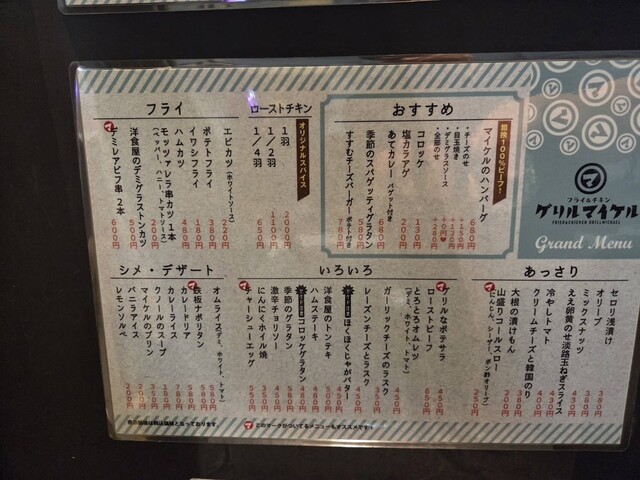 フライ&チキン
グリルマイケル
FRIED&CHICKEN GRILL MICHAEL
Grand Menu
おすすめ
粗挽100%ビーフ!
マイケルのハンバーグ 680円
・チーズのせ +150円
・目玉焼き +130円
・デミグラスソース +0円
・全部のせ +280円
コロッケ 200円
塩カラアゲ
あてカレー バゲット付き
季節のスパゲッティグラタン 580円
すすむチーズバーガー ポテト付き 780円
ローストチキン
オリジナルスパイス
1羽 2000円
1/2羽 1100円
1/4羽 650円
フライ
エビカツ(ホワイトソース) 220円
ポテトフライ 380円
イワシフライ 180円
ハムカツ 480円
モッツァレラ串カツ 1本 200円
(ペッパー、ハニー、トマトソース)
洋食屋のデミグラストンカツ 500円
デミレアビフ串 2本 600円
あっさり
セロリ浅漬け 380円
オリーブ 380円
ミックスナッツ
ええ卵黄のせ淡路玉ねぎスライス 430円
冷やしトマト 400円
クリームチーズと韓国のり 430円
大根の漬けもん 380円
山盛りコールスロー 200円
(にんじん、シーザー、ポン酢オリーブ) 250円
いろいろ
グリルなポテサラ 450円
ローストビーフ 650円
とろとろオムレツ
(デミ、ホワイト、トマト)
ガーリックチーズのラスク 450円
レーズンチーズとラスク 350円
ほくほくじゃがバター 450円
洋食屋のトンテキ
ハムステーキ 480円
コロッケグラタン
季節のグラタン 580円
激辛チョリソー 450円
にんにくホイル焼 350円
チャーシューエッグ 550円
シメ・デザート
オムライス(デミ、ホワイト、トマト) 580円
鉄板ナポリタン 580円
カレードリア 580円
カレーライス 780円
クノールのスープ 180円
マイケルのプリン 350円
バニラアイス 110円
レモンソルベ 200円
このマークがついてるメニューもオススメです!